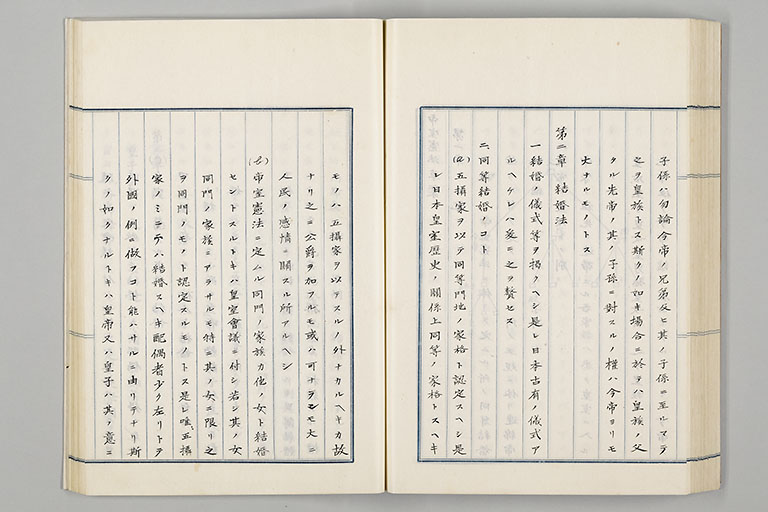 子孫ハ勿論今帝ノ兄弟及ヒ其ノ子孫ニ至ルマテ
之ヲ皇族トス斯クノ如キ場合ニ於テハ皇族ノ父
タル先帝ノ其ノ子孫ニ對スルノ權ハ今帝ヨリモ
大ナルモノトス
第二章 結婚法
一 結婚ノ儀式等ヲ掲クヘシ是レ日本古有ノ儀式ア
ルヘケレハ爰ニ之ヲ贅セス
二 同等結婚ノコト
(い)五攝家ヲ以テ同等門地ノ家格ト認定スヘシ是
レ日本皇室歴史ノ關係上同等ノ家格トスヘキ
モノハ五攝家ヲ以テスルノ外ナカルヘキカ故
ナリ之ニ公爵ヲ加フルモ或ハ可ナラン モ大ニ
人民ノ感情ニ關スル所アルヘシ
(ろ)帝室憲法ニ定ムル同門ノ家族カ他ノ女ト結婚
セントスルトキハ皇室會議ニ付シ若シ其ノ女
同門ノ家族ニアラサルモ特ニ其ノ女ニ限リ之
ヲ同門ノモノト認定スルモノトス是レ唯五攝
家ノミニテハ結婚スヘキ配偶者少ク左リトテ
外國ノ例ニ倣フコト能ハサルニ由リテナリ斯
クノ如クナルトキハ皇帝又ハ皇子ハ其ノ意ニ